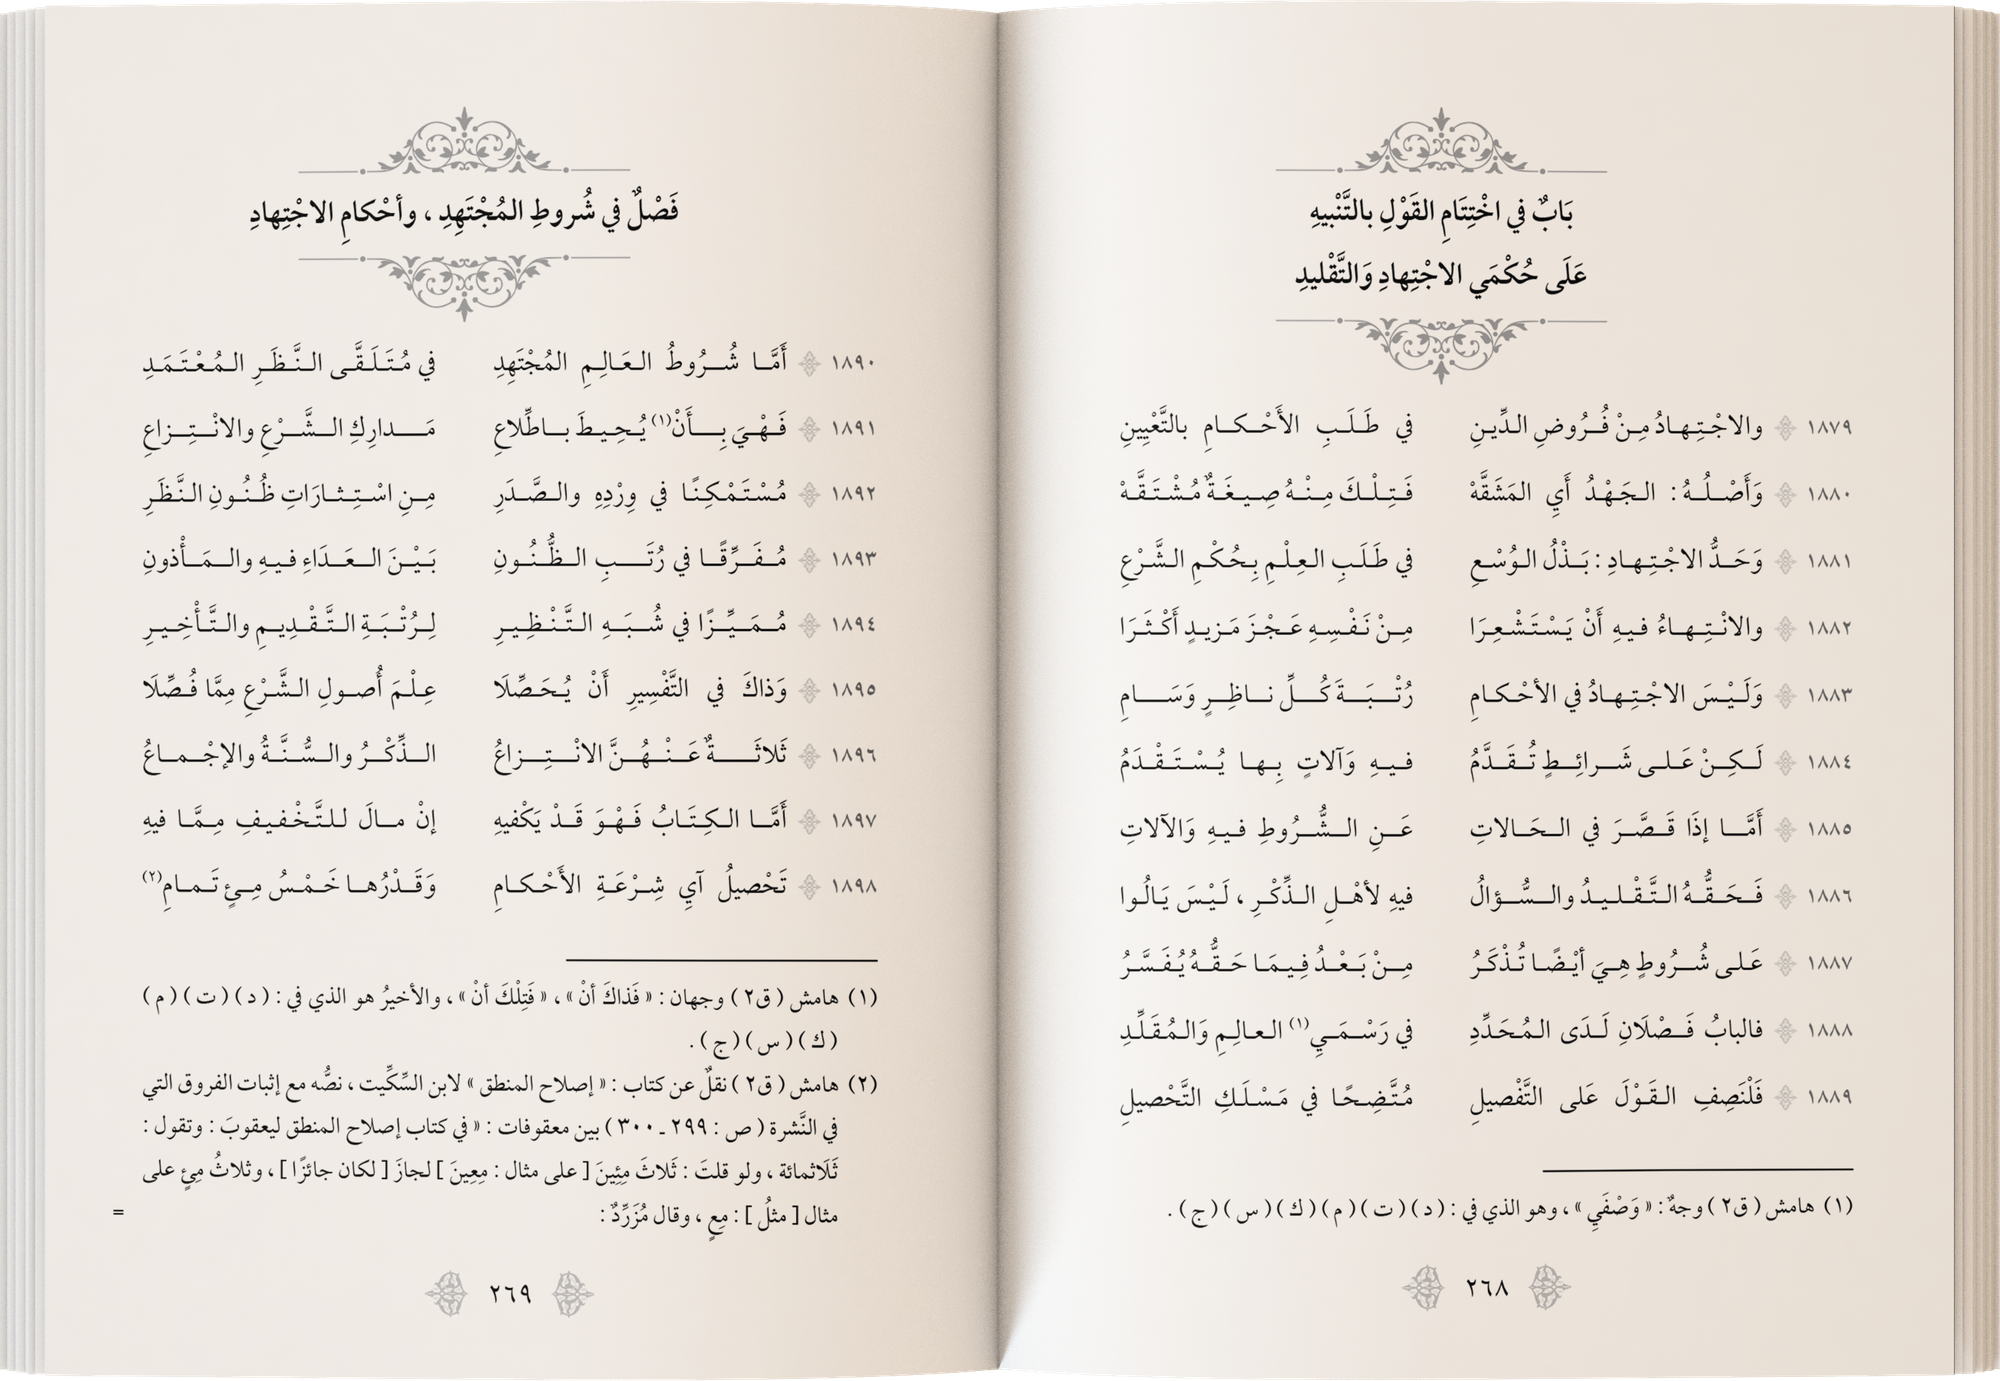 بَابٌ في اخْتِتَامِ القَوْلِ بالتَّنْبيهِ
عَلَى حُكْمَيِ الاجْتِهادِ وَالتَّقْليدِ
١٨٧٩ والاجْتِهادُ مِنْ فُرُوضِ الدِّينِ في طَلَبِ الأَحْكامِ بالتَّعْيِينِ
١٨٨٠ وَأَصْلُهُ : الجَهْدُ أَيِ المَشَقَّهْ فَتِلْكَ مِنْهُ صِيغَةٌ مُشْتَقَّهْ
١٨٨١ وَحَدُّ الاجْتِهادِ : بَذْلُ الوُسْعِ في طَلَبِ العِلْمِ بِحُكْمِ الشَّرْعِ
١٨٨٢ والانْتِهاءُ فيهِ أَنْ يَسْتَشْعِرَا مِنْ نَفْسِهِ عَجْزَ مَزيدٍ أَكْثَرَا
١٨٨٣ وَلَيْسَ الاجْتِهادُ في الأحْكامِ رُتْبَةَ كُلِّ ناظِرٍ وَسَامِ
١٨٨٤ لَكِنْ عَلى شَرائِطٍ تُقَدَّمُ فيهِ وَآلاتٍ بِها يُسْتَقْدَمُ
١٨٨٥ أَمَّا إذَا قَصَّرَ في الحَالاتِ عَنِ الشُّرُوطِ فيهِ وَالآلاتِ
١٨٨٦ فَحَقُّهُ التَّقْليدُ والسُّؤالُ فيهِ لأهْلِ الذِّكْرِ ، لَيْسَ يَالُوا
١٨٨٧ عَلى شُرُوطٍ هِيَ أيْضًا تُذْكَرُ مِنْ بَعْدُ فِيمَا حَقُّهُ يُفَسَّرُ
١٨٨٨ فالبابُ فَصْلَانِ لَدَى المُحَدِّدِ في رَسْمَيِ(١) العالِمِ وَالمُقَلِّدِ
١٨٨٩ فَلْنَصِفِ القَوْلَ عَلى التَّفْصيلِ مُتَّضِحًا في مَسْلَكِ التَّحْصيلِ
(١) هامش ( ق٢ ) وجهٌ : « وَصْفَيِ » ، وهو الذي في : ( د ) ( ت ) ( م ) ( ك ) ( س ) ( ج ) .
٢٦٨
فَصْلٌ في شُروطِ المُجْتَهِدِ ، وأحْكامِ الاجْتِهادِ
١٨٩٠ أَمَّا شُرُوطُ العَالِمِ المُجْتَهِدِ في مُتَلَقَّى النَّظَرِ المُعْتَمَدِ
١٨٩١ فَهْيَ بِأَنْ(١) يُحِيطَ باطِّلاعِ مَدارِكِ الشَّرْعِ والانْتِزاعِ
١٨٩٢ مُسْتَمْكِنًا في وِرْدِهِ والصَّدَرِ مِنِ اسْتِثارَاتِ ظُنُونِ النَّظَرِ
١٨٩٣ مُفَرِّقًا في رُتَبِ الظُّنُونِ بَيْنَ العَدَاءِ فيهِ والمَأْذونِ
١٨٩٤ مُمَيِّزًا في شُبَهِ التَّنْظِيرِ لِرُتْبَةِ التَّقْدِيمِ والتَّأْخِيرِ
١٨٩٥ وَذاكَ في التَّفْسِيرِ أَنْ يُحَصِّلَا عِلْمَ أُصولِ الشَّرْعِ مِمَّا فُصِّلَا
١٨٩٦ ثَلاثَةٌ عَنْهُنَّ الانْتِزاعُ الذِّكْرُ والسُّنَّةُ والإجْماعُ
١٨٩٧ أَمَّا الكِتَابُ فَهْوَ قَدْ يَكْفيهِ إنْ مالَ للتَّخْفيفِ مِمَّا فيهِ
١٨٩٨ تَحْصيلُ آيِ شِرْعَةِ الأَحْكامِ وَقَدْرُها خَمْسُ مِئٍ تَمامِ(٢)
(١) هامش ( ق٢ ) وجهان : « فَذاكَ أنْ » ، « فَتِلْكَ أنْ » ، والأخيرُ هو الذي في : ( د ) ( ت ) ( م )
( ك ) ( س ) ( ج ) .
(٢) هامش ( ق٢ ) نقلٌ عن كتاب : « إصلاح المنطق » لابن السِّكِّيت ، نصُّه مع إثبات الفروق التي
في النَّشرة ( ص : ٢٩٩ ـ ٣٠٠ ) بين معقوفات : « في كتاب إصلاح المنطق ليعقوبَ : وتقول :
ثَلَاثمائة ، ولو قلتَ : ثَلاثَ مِئِينَ [ على مثال : مِعِينَ ] لجازَ [ لكان جائزًا ] ، وثلاثُ مِئٍ على
مثال [ مثلُ ] : مِعٍ ، وقال مُزَرِّدٌ :
=
٢٦٩